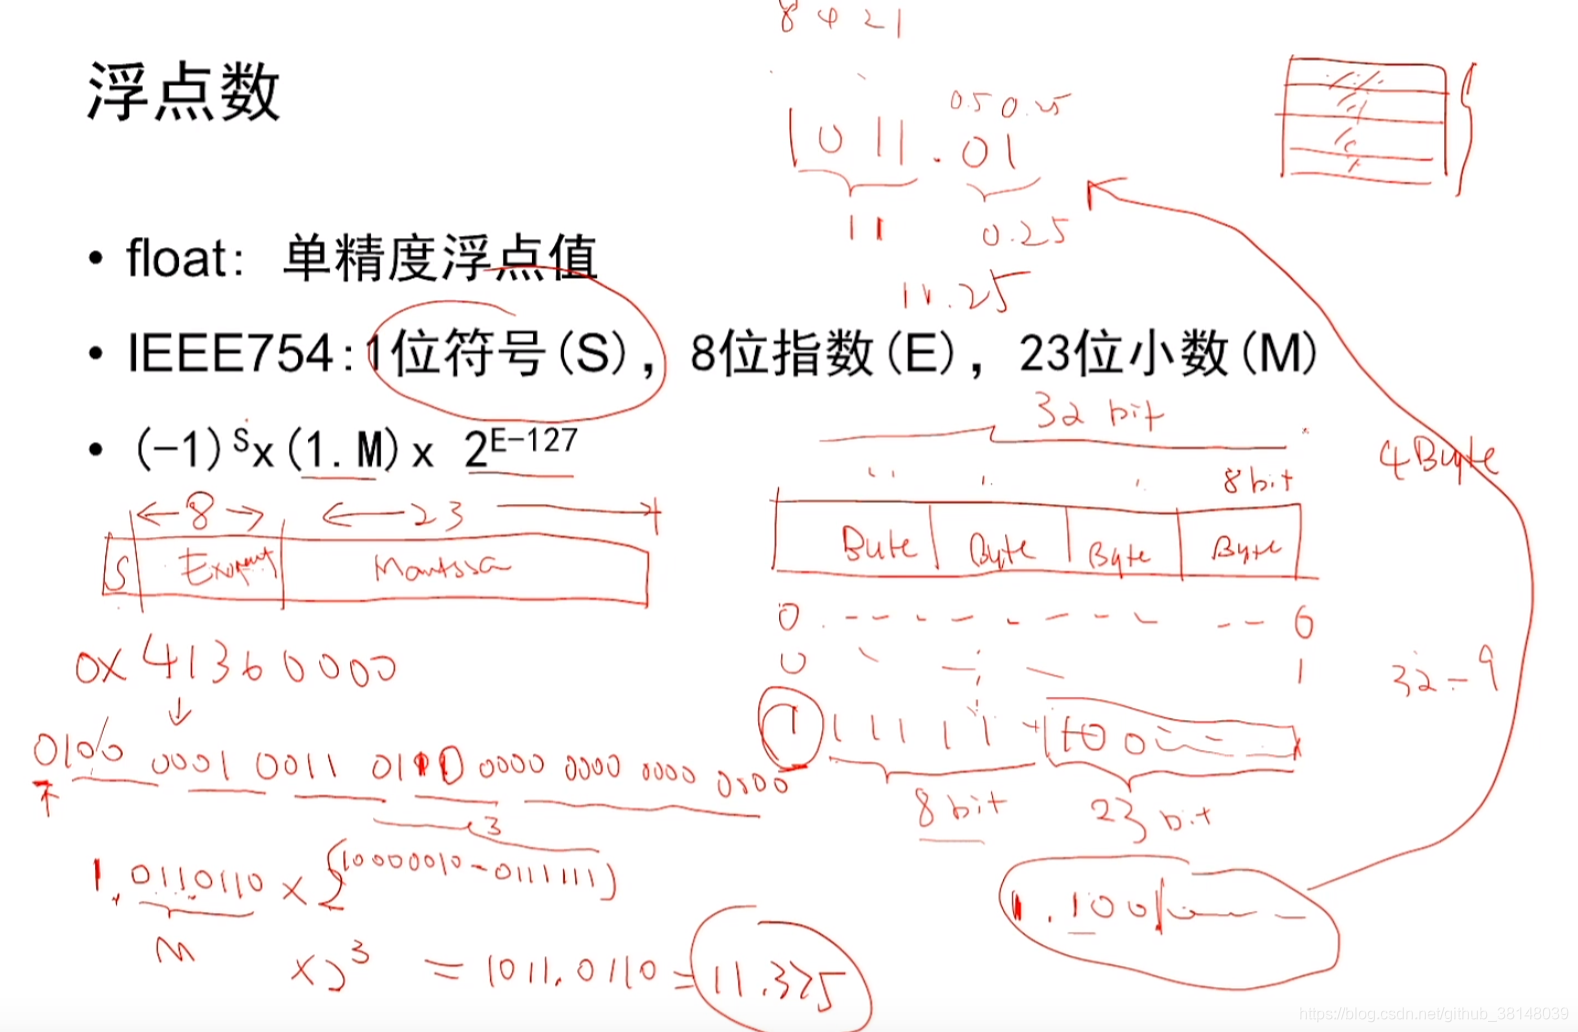 8 4 2 1
浮点数
0.5 0.25
1011.01
11
0.25
11.25
• float：单精度浮点值
• IEEE754:1位符号(S)，8位指数(E)，23位小数(M)
32 bit
• (-1)ˢx(1.M)x 2ᴱ⁻¹²⁷
4Byte
8bit
8
23
S
Mantssa
Byte Byte Byte Byte
0 0
0x41360000
0 1
32-9
0100 0001 0011 0110 0000 0000 0000 0000
1 1 1 1 1 1
8 bit
23 bit
3
1.0110110 x 2(10000010-01111111)
M
1.100
x2³ = 1011.0110 = 11.375
https://blog.csdn.net/github_38148039